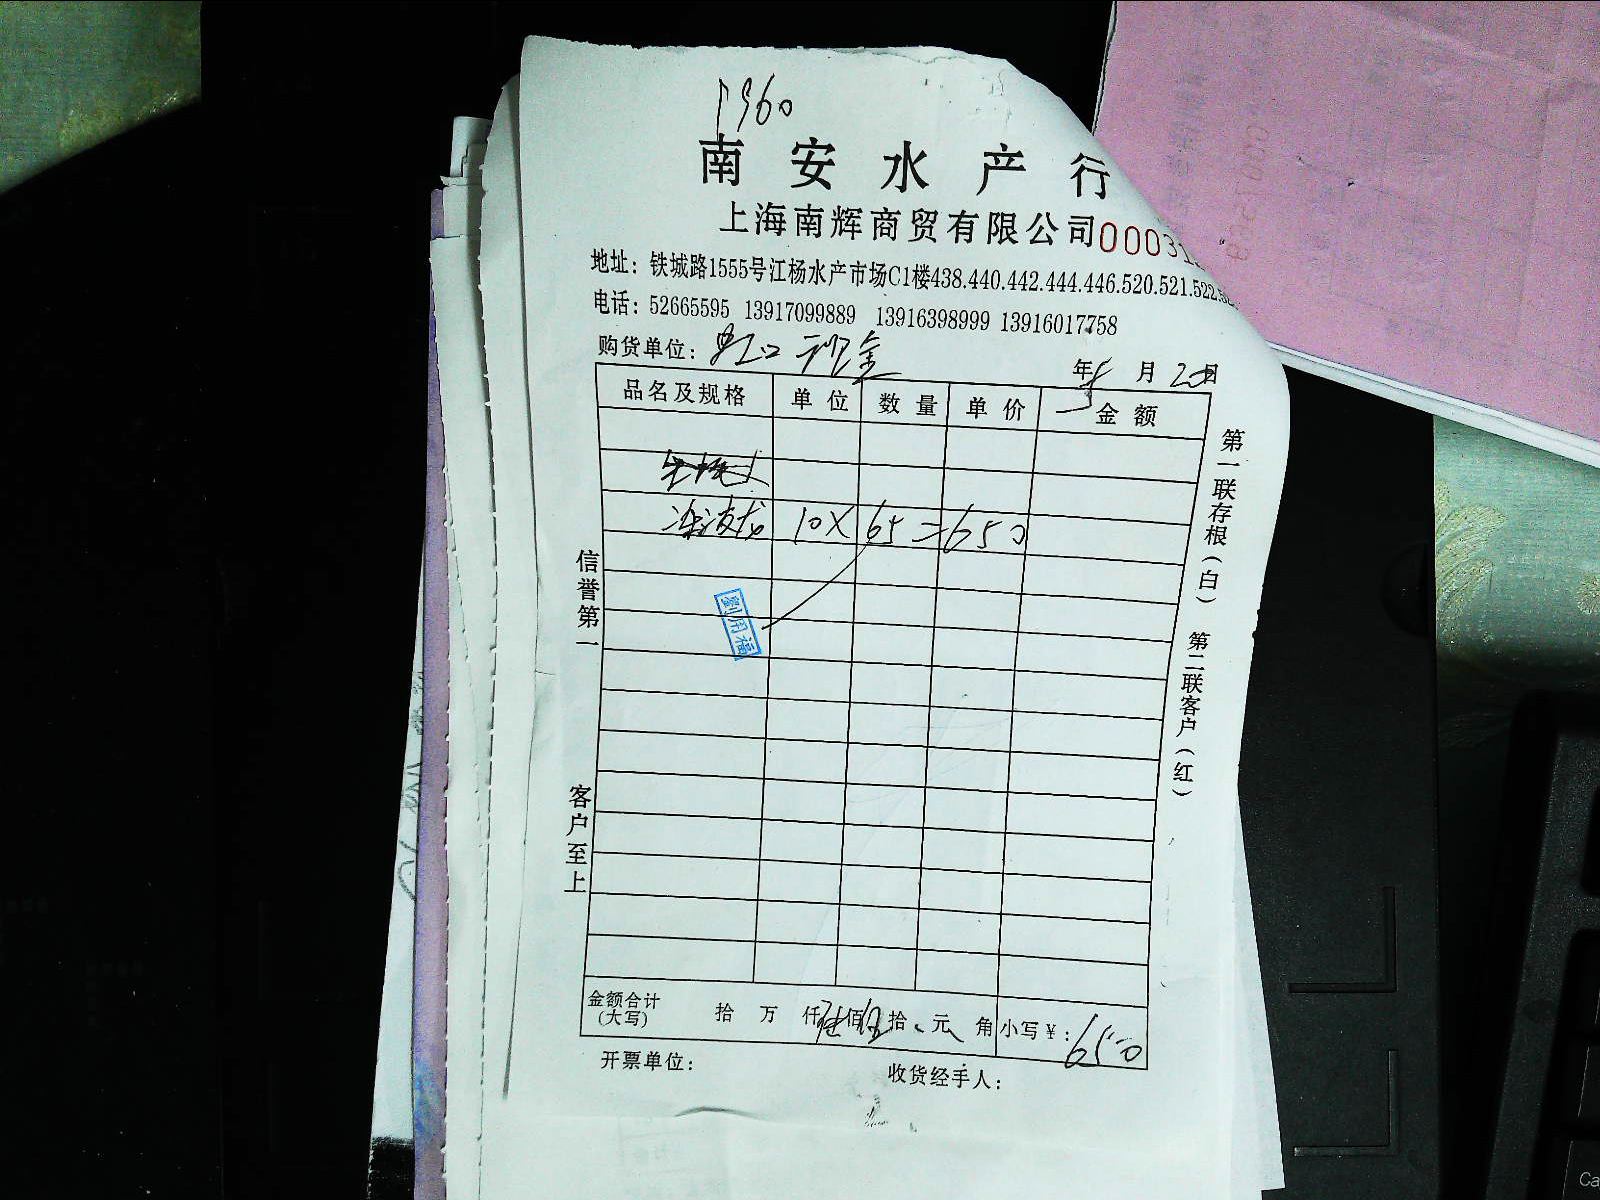 南安水产行
上海南辉商贸有限公司 00031
地址：铁城路1555号江杨水产市场C1楼438.440.442.444.446.520.521.522.
电话：52665595 13917099889 13916398999 13916017758
购货单位：虹口 现金
年 5 月 20 日
品名及规格 单位 数量 单价 金额
10 X 65 = 650
劉用福
信誉第一
客户至上
第一联存根（白）
第二联客户（红）
金额合计（大写） 拾 万 仟 陆 佰 伍 拾 元 角 小写￥：650
开票单位：
收货经手人：